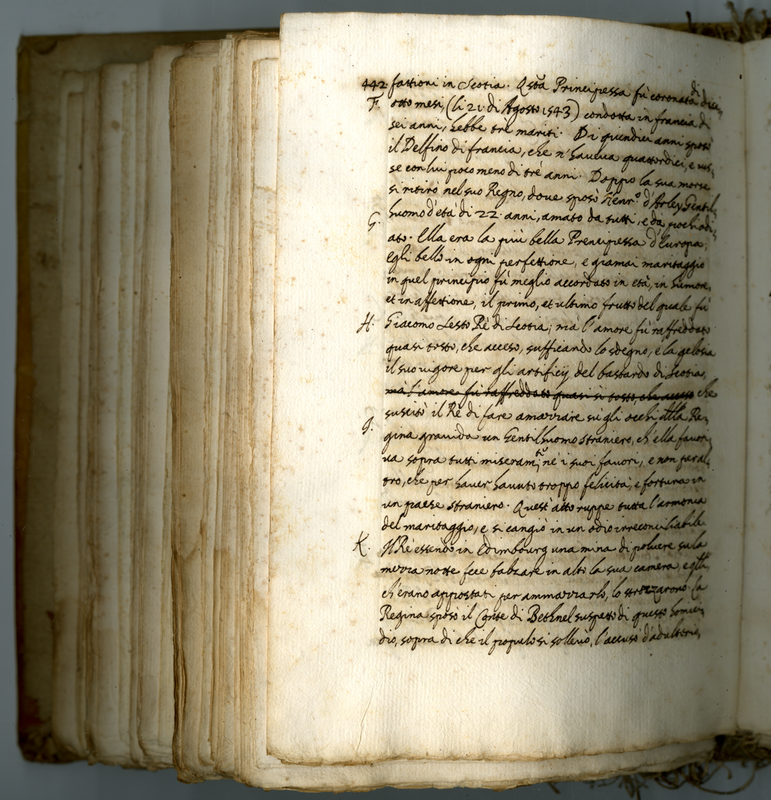 442 fattioni in Scotia. Q.sta Principessa fù coronata di dieci
F. otto mesi, (li 21. di Agosto 1543) condotta in francia di
sei anni, hebbe tre mariti. Di quindici anni sposò
il Delfino di francia, che n'haueua quattordici, e uis,
se con lui poco meno di trè anni. Doppo la sua morte
si ritirò nel suo Regno, doue sposò Henr.o d'Arley Gentil,
G. huomo d'età di 22. anni, amato da tutti, e da pochi odi,
ato. Ella era la più bella Prencipessa d'Europa,
egli bello in ogni perfettione, e giamai maritaggio
in quel principio fù meglio accordato in età, in humore,
et in affettione, il primo, et ultimo frutto del quale fù
H. Giacomo Sesto Rè di Scotia; ma l'amore fù raffreddato
quasi tosto, che acceso, sufficando lo sdegno, e la gelosia
il suo uigore per gli artificij del bastardo di Scotia,
ma l'amore fù raffreddato quasi si tosto che acceso che
suscitò il Rè di fare amazzare sù gli occhi della Re,
J. gina grauida un Gentilhuomo straniero, ch'ella fauori,
ua sopra tutti miseram.te né i suoi fauori, e non per al,
tro, che per hauer hauuto troppo felicità, e fortuna in
un paese straniero. Quest'atto ruppe tutta l'armonia
del maritaggio, e si cangiò in un odio irreconciliabile
K. Il Rè essendo in Edimbourg una mina di poluere sù la
mezza notte fece sbalzare in alto la sua camera, e q.lli
ch'erano appostati per ammazzarlo, lo strozzarono. La
Regina sposò il Conte di Bethnel suspetto di questo homici,
dio, sopra di che il populo si solleuò, l'accusò d'adulterio,